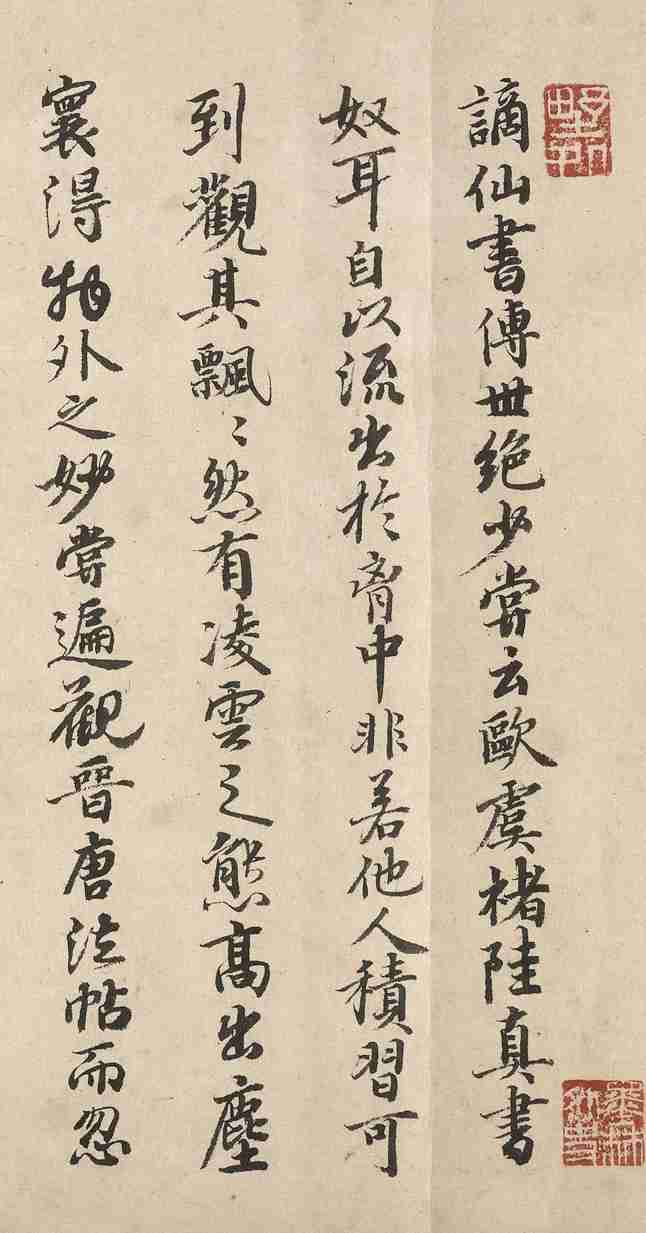 謫仙書傳世絶少嘗云歐虞褚陸真書
奴耳自以流出於胷中非若他人積習可
到觀其飄〻然有凌雲之態高出塵
寰得物外之妙嘗遍觀晉唐法帖而忽